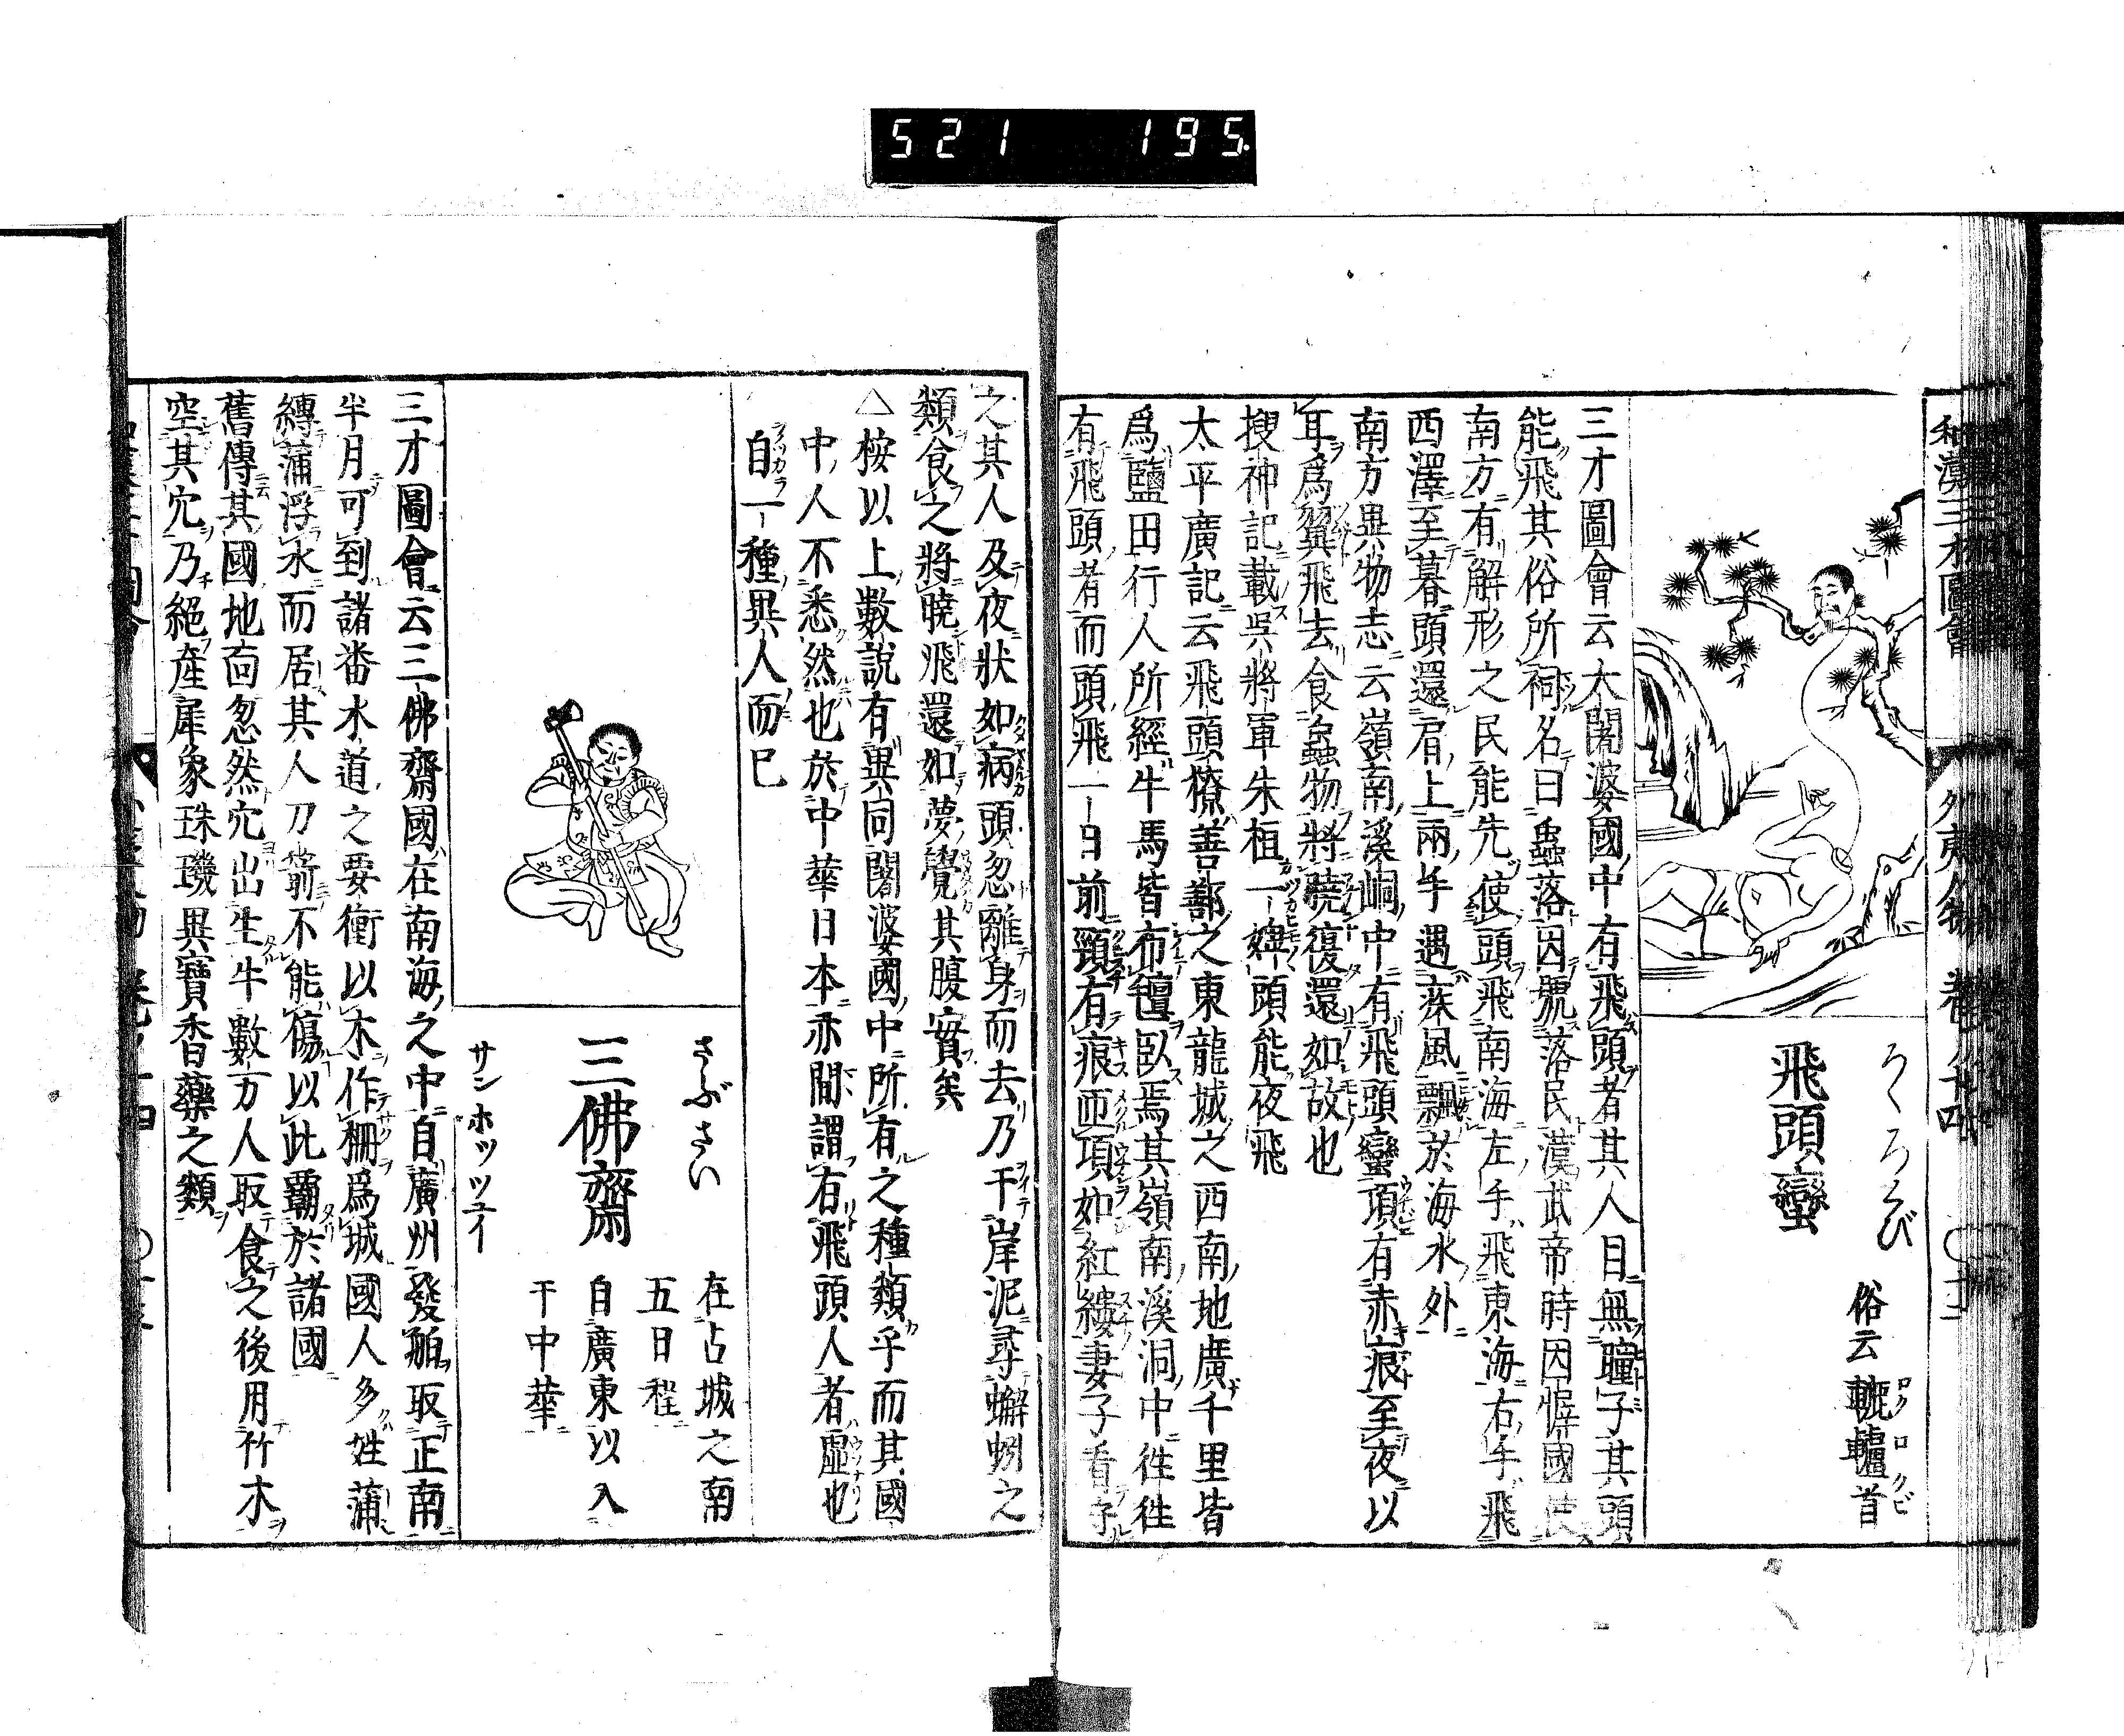 521 195.
和漢三才圖會
外夷人物 卷ノ十四
ろくろくび
飛頭蠻
俗云轆轤首
ロクロクビ
三才圖會云大闍婆國中有飛頭者其人目無瞳子其頭
能飛其俗所祠名曰蟲落因號落民漢武帝時因㙄國使
南方有解形之民能先使頭飛南海左手飛東海右手飛
西澤至暮頭還肩上兩手遇疾風飄於海水外
南方異物志云嶺南溪峒中有飛頭蠻項有赤痕至夜以
耳爲翼飛去食蟲物將曉復還如故也
搜神記載呉將軍朱桓一婢頭能夜飛
太平廣記云飛頭獠善鄯之東龍城之西南地廣千里皆
爲鹽田行人所經牛馬皆布氊臥焉其嶺南溪洞中徃徃
有飛頭者而頭飛一日前頸有痕匝項如紅縷妻子看守
之其人及夜狀如病頭忽離身而去乃于岸泥尋蠏蚓之
類食之將曉飛還如夢覺其腹實矣
△桉以上數說有異同闍婆國中所有之種類乎而其國
中人不悉然也於中華日本亦間謂有飛頭人者虛也
自一種異人而已
さぶさい
三佛齋
サンホツツユイ
在占城之南
五日程
自廣東以入
于中華
三才圖會云三佛齋國在南海之中自廣州發舶取正南
半月可到諸番水道之要衝以木作柵爲城國人多姓蒲
縛蒲浮水而居其人刀箭不能傷以此霸於諸國
舊傳其國地面忽然穴出生牛數万人取食之後用竹木
空其穴乃絕產犀象珠璣異寶香藥之類